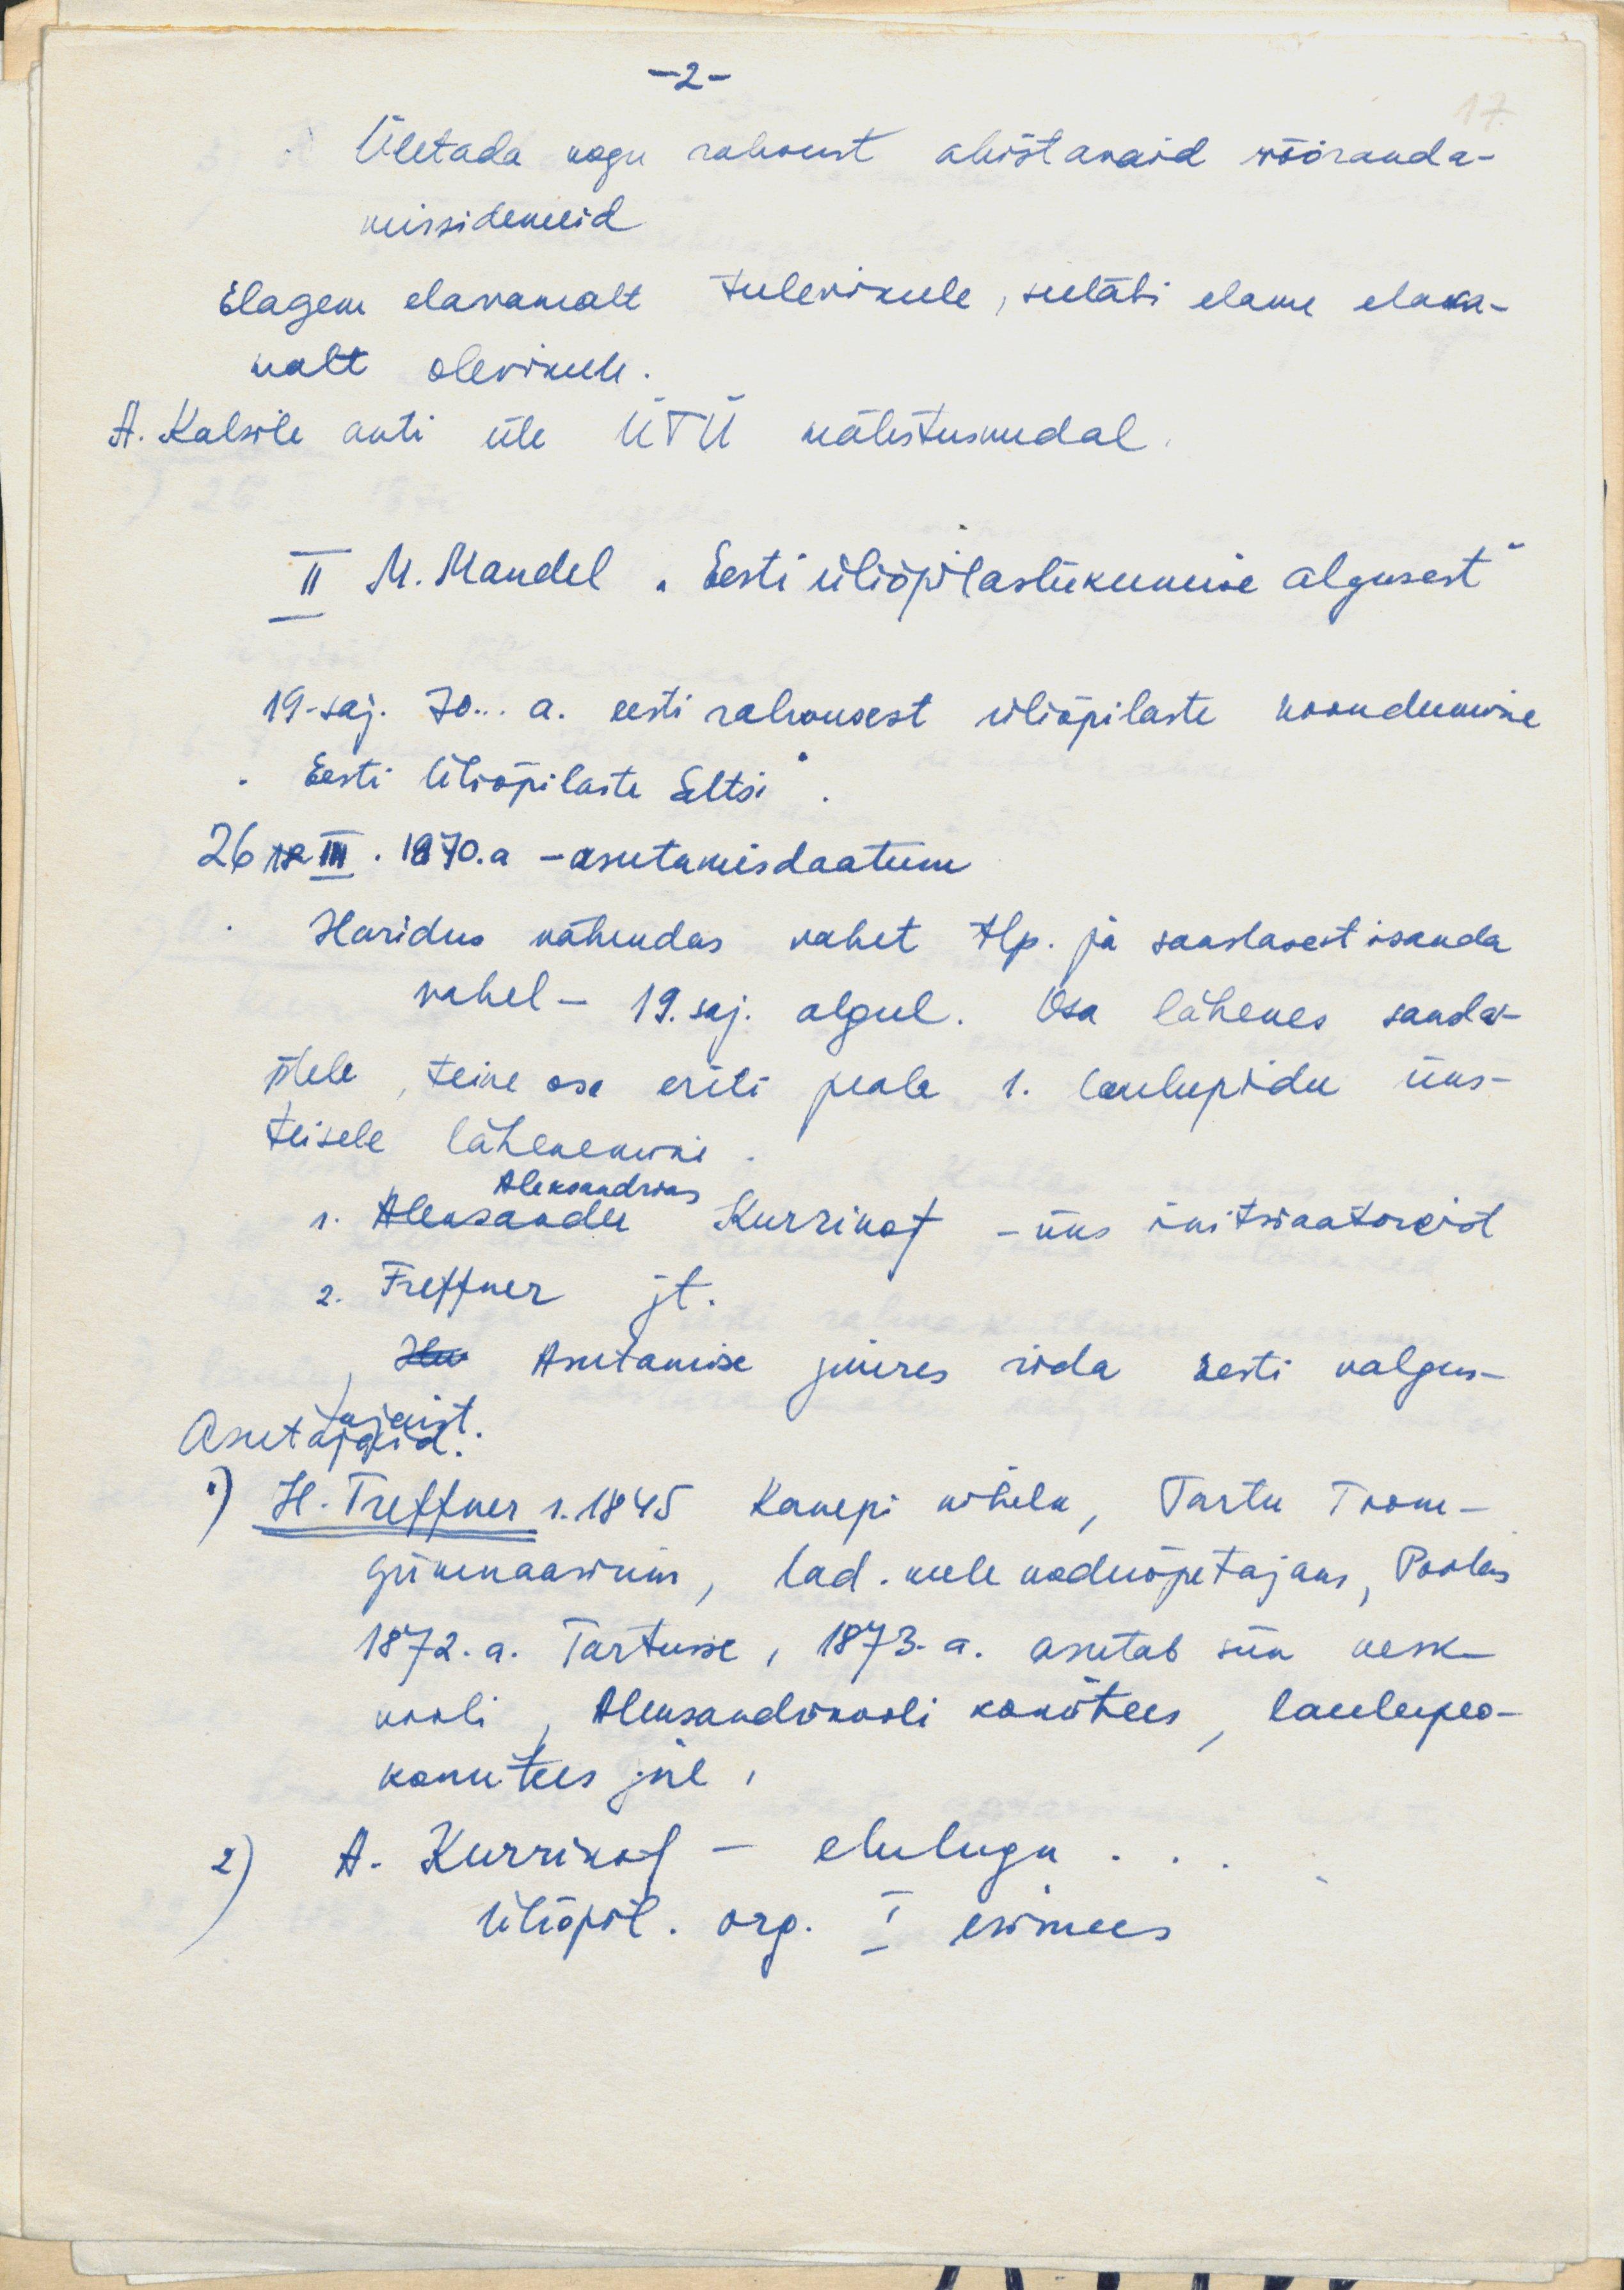 -2-
17.
Ületada kogu rahvust ahistavaid võõranda-
missidemeid
Elagem elavamalt tulevikule, seeläbi elame elava-
malt olevikule.
A. Kalsile anti üle ÜTÜ mälestusmedal.
II M. Mandel "Eesti üliõpilasliikumise algusest"
19-saj. 70... a. eesti rahvusest üliõpilaste koondumine
"Eesti Üliõpilaste Seltsi".
26 III. 1870.a - asutamisdaatum
Haridus vähendas vahet tlp. ja saaslasest isanda
vahel - 19. saj. algul. Osa lähenes sandar-
mele, teine osa eriti peale 1. laulupidu üks-
teisele lähenemine.
Aleksandrias
1. Aleksander Kurrikof - üks initsiaatoreist
2. Treffner jt.
Asutamise juures rida eesti valgus-
tajaist.
Asutajaid:
1) H. Treffner s. 1845 Kanepi kihelk, Tartu Toom-
gümnaasium, lad. keele koduõpetajaks, Poolas
1872. a. Tartusse, 1873. a. asutab siin kesk-
kooli, Aleksandrikooli komitees, laulupeo-
komitees jne,
2) A. Kurrikof - elulugu . . .
Üliõpil. org. I esimees